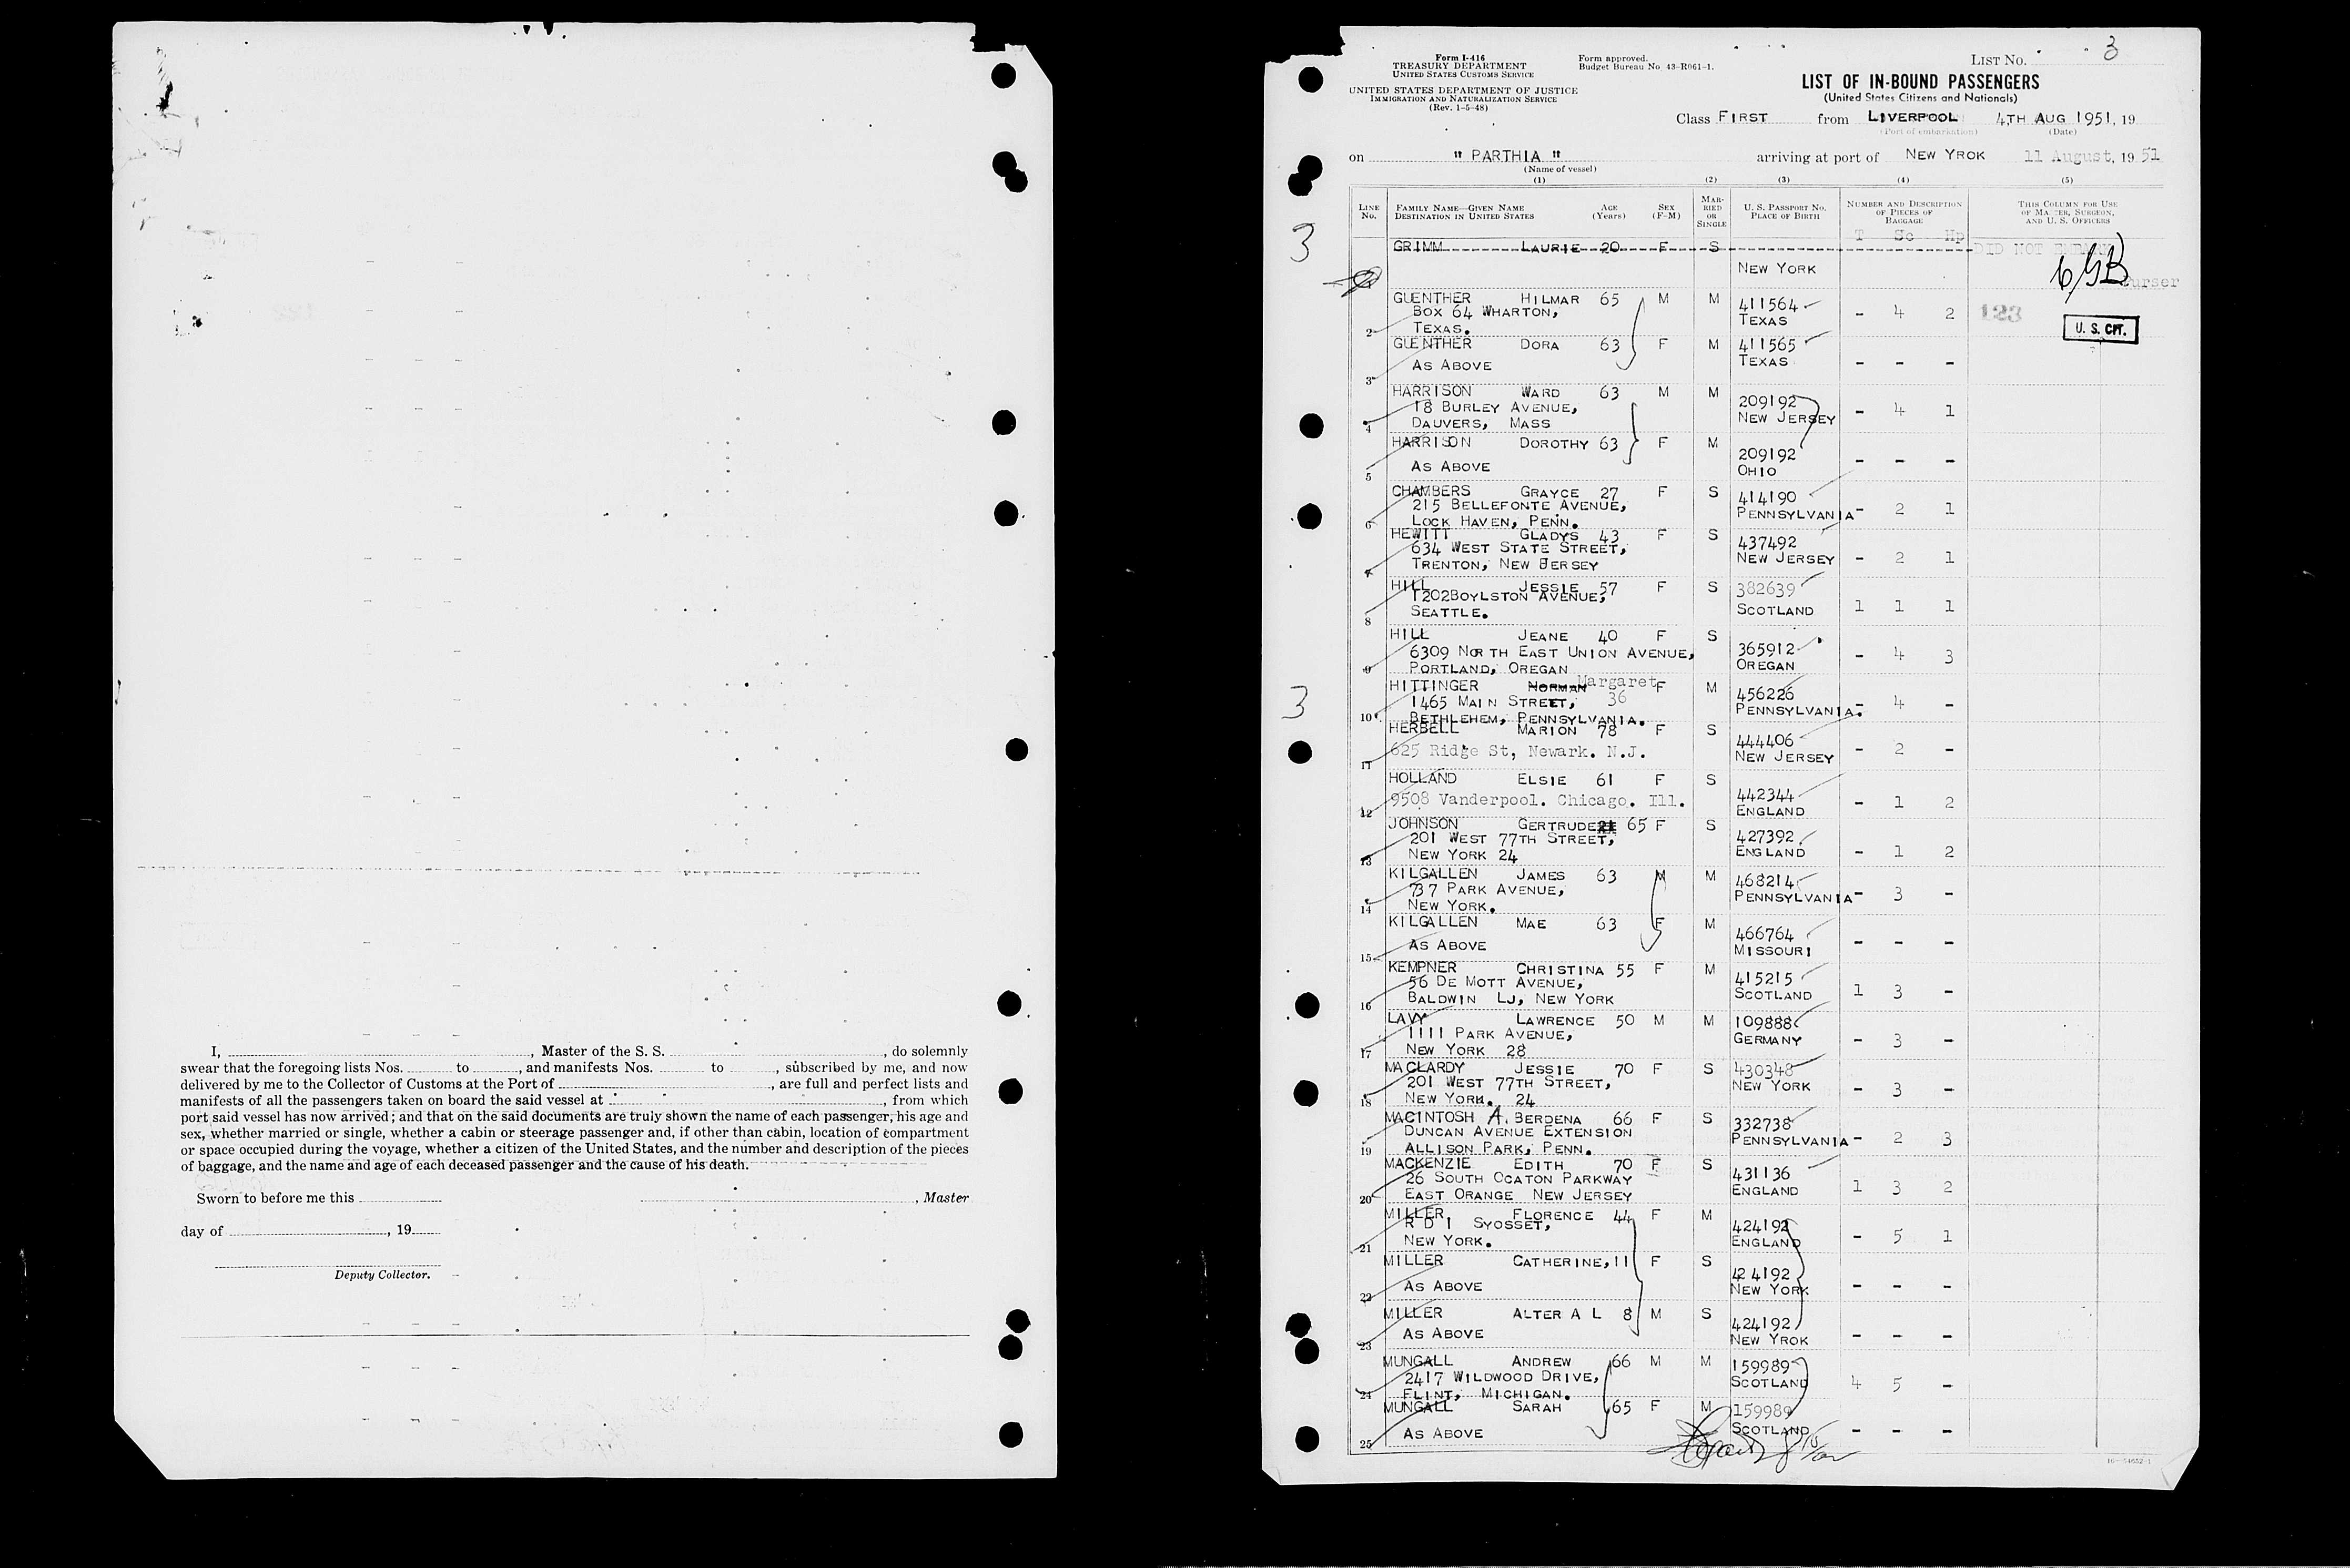 I, , Master of the S. S. , do solemnly
swear that the foregoing lists Nos. to , and manifests Nos. to , subscribed by me, and now
delivered by me to the Collector of Customs at the Port of , are full and perfect lists and
manifests of all the passengers taken on board the said vessel at , from which
port said vessel has now arrived; and that on the said documents are truly shown the name of each passenger, his age and
sex, whether married or single, whether a cabin or steerage passenger and, if other than cabin, location of compartment
or space occupied during the voyage, whether a citizen of the United States, and the number and description of the pieces
of baggage, and the name and age of each deceased passenger and the cause of his death.
Sworn to before me this , Master
day of , 19
Deputy Collector.
Form I-416
TREASURY DEPARTMENT
UNITED STATES CUSTOMS SERVICE
UNITED STATES DEPARTMENT OF JUSTICE
IMMIGRATION AND NATURALIZATION SERVICE
(Rev. 1-5-48)
Form approved.
Budget Bureau No. 43-R061-1.
LIST No. 3
LIST OF IN-BOUND PASSENGERS
(United States Citizens and Nationals)
Class FIRST from LIVERPOOL 4TH AUG 1951, 19
(Port of embarkation) (Date)
on " PARTHIA " arriving at port of NEW YROK 11 August, 19 51
(Name of vessel)
(1) (2) (3) (4) (5)
LINE No. FAMILY NAME—GIVEN NAME DESTINATION IN UNITED STATES AGE (Years) SEX (F-M) MARRIED OR SINGLE U. S. PASSPORT No. PLACE OF BIRTH NUMBER AND DESCRIPTION OF PIECES OF BAGGAGE THIS COLUMN FOR USE OF MASTER, SURGEON, AND U. S. OFFICERS
T Sc Hp
3
GRIMM LAURIE 20 F S DID NOT EMBARK
NEW YORK
Purser
GUENTHER HILMAR 65 M M 411564
BOX 64 WHARTON, TEXAS - 4 2 123
2 TEXAS. U. S. CIT.
GUENTHER DORA 63 F M 411565
AS ABOVE TEXAS - - -
3
HARRISON WARD 63 M M 209192
18 BURLEY AVENUE, NEW JERSEY - 4 1
4 DAUVERS, MASS
HARRISON DOROTHY 63 F M 209192
5 AS ABOVE OHIO - - -
CHAMBERS GRAYCE 27 F S 414190
215 BELLEFONTE AVENUE, PENNSYLVANIA - 2 1
6 LOCK HAVEN, PENN.
HEWITT GLADYS 43 F S 437492
634 WEST STATE STREET, NEW JERSEY - 2 1
7 TRENTON, NEW BERSEY
HILL JESSIE 57 F S 382639
1202BOYLSTON AVENUE, SCOTLAND 1 1 1
8 SEATTLE.
HILL JEANE 40 F S 365912
6309 NORTH EAST UNION AVENUE, OREGAN - 4 3
9 PORTLAND, OREGAN
HITTINGER NORMAN Margaret F M 456226
1465 MAIN STREET, 36 PENNSYLVANIA. - 4 -
3
10 BETHLEHEM, PENNSYLVANIA.
HERBELL MARION 78 F S 444406
11 625 Ridge St, Newark. N.J. NEW JERSEY - 2 -
HOLLAND ELSIE 61 F S 442344
12 9508 Vanderpool. Chicago. Ill. ENGLAND - 1 2
JOHNSON GERTRUDE 21 65 F S 427392
201 WEST 77TH STREET, ENGLAND - 1 2
13 NEW YORK 24
KILGALLEN JAMES 63 M M 468214
737 PARK AVENUE, PENNSYLVANIA - 3 -
14 NEW YORK.
KILGALLEN MAE 63 F M 466764
15 AS ABOVE MISSOURI - - -
KEMPNER CHRISTINA 55 F M 415215
56 DE MOTT AVENUE, SCOTLAND 1 3 -
16 BALDWIN LJ, NEW YORK
LAVY LAWRENCE 50 M M 109888
1111 PARK AVENUE, GERMANY - 3 -
17 NEW YORK 28
MACLARDY JESSIE 70 F S 430348
201 WEST 77TH STREET, NEW YORK - 3 -
18 NEW YORK. 24
MACINTOSH A. BERDENA 66 F S 332738
DUNCAN AVENUE EXTENSION PENNSYLVANIA - 2 3
19 ALLISON PARK, PENN.
MACKENZIE EDITH 70 F S 431136
26 SOUTH OCATON PARKWAY ENGLAND 1 3 2
20 EAST ORANGE NEW JERSEY
MILLER FLORENCE 44 F M 424192
R D 1 SYOSSET, ENGLAND - 5 1
21 NEW YORK.
MILLER CATHERINE, 11 F S 424192
22 AS ABOVE NEW YORK - - -
MILLER ALTER A L 8 M S 424192
23 AS ABOVE NEW YROK - - -
MUNGALL ANDREW 66 M M 159989
2417 WILDWOOD DRIVE, SCOTLAND 4 5 -
24 FLINT, MICHIGAN.
MUNGALL SARAH 65 F M 159989
25 AS ABOVE SCOTLAND - - -